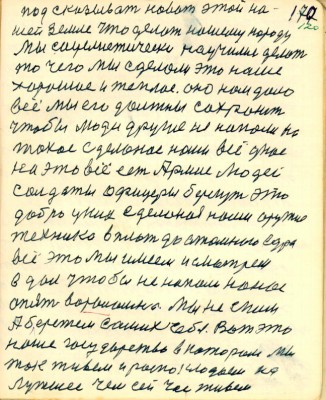 подсказыват новат этой на- 170
120
шей земле что делат нашему народу
мы научилис делат
то чего мы сделали это наше
хорошое и теплое. оно нам дано
всё мы его должны сохранит
чтобы люди другие не напали на
такое сделаное нами всё одно
на это всё ест Армие людей
солдаты офицеры берегут это
добро у них сделоноя нами оружие
техника вплот до атомного едра
всё это мы имеем и смотрем
в дал чтобы не напал на нас
опят Мы не спим
А бережем самих себя. Вот это
наше государство в котором мы
так живем и на
лучшее чем сейчас живем